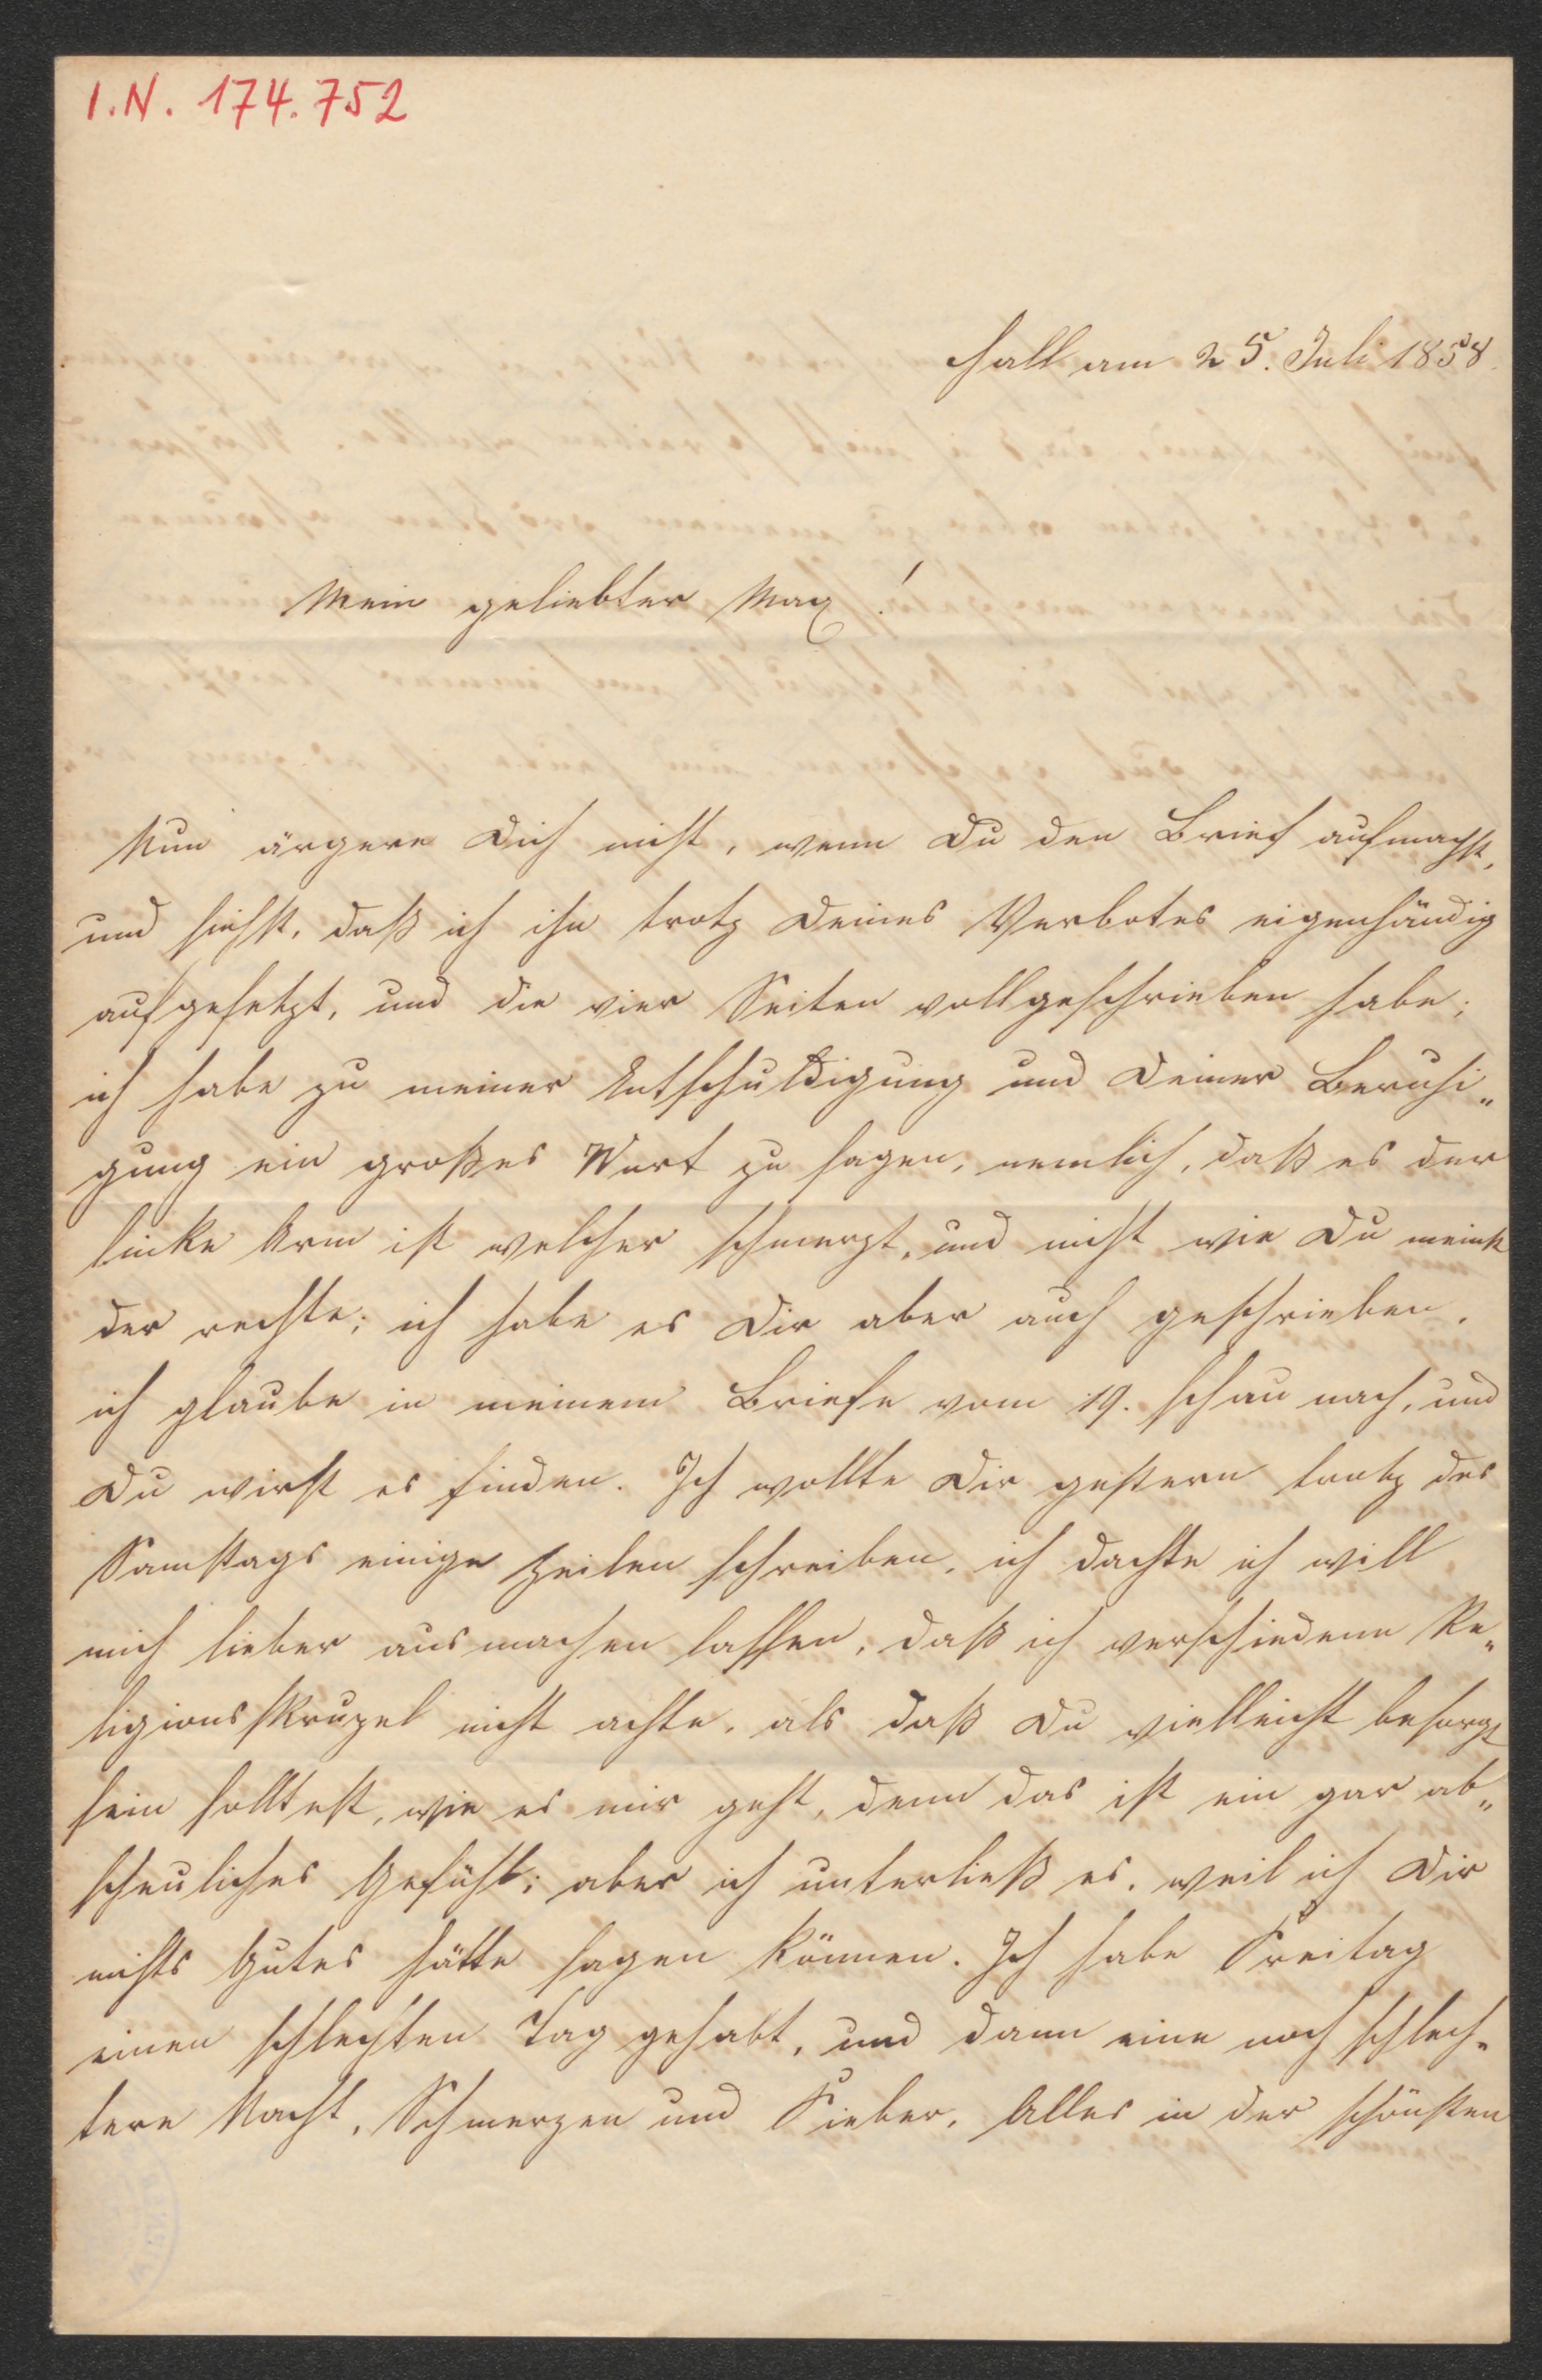 I.N. 174.752
Hall am 25. Juli 1858.
Mein geliebter Max!
Nun ärgere Dich nicht, wenn Du den Brief aufmachst,
und siehst, daß ich ihn trotz Deines Verbotes eigenhändig
aufgesetzt, und die vier Seiten vollgeschrieben habe;
ich habe zu meiner Entschuldigung und Deiner Beruhi„
gung ein großes Wort zu sagen, nemlich, daß es der
linke Arm ist welcher schmerzt, und nicht wie Du meinst
der rechte; ich habe es Dir aber auch geschrieben,
ich glaube in meinem Briefe vom 19. schau nach, und
Du wirst es finden. Ich wollte Dir gestern trotz des
Samstags einige Zeilen schreiben, ich dachte ich will
mich lieber ausmachen lassen, daß ich verschiedene Re„
ligionsskrupel nicht achte, als daß Du vielleicht besorgt
sein solltest, wie es mir geht, denn das ist ein gar ab„
scheuliches Gefühl; aber ich unterließ es, weil ich Dir
nichts Gutes hätte sagen können. Ich habe Freitag
einen schlechten Tag gehabt, und dann eine noch schlech„
tere Nacht, Schmerzen und Fieber, Alles in der schönsten